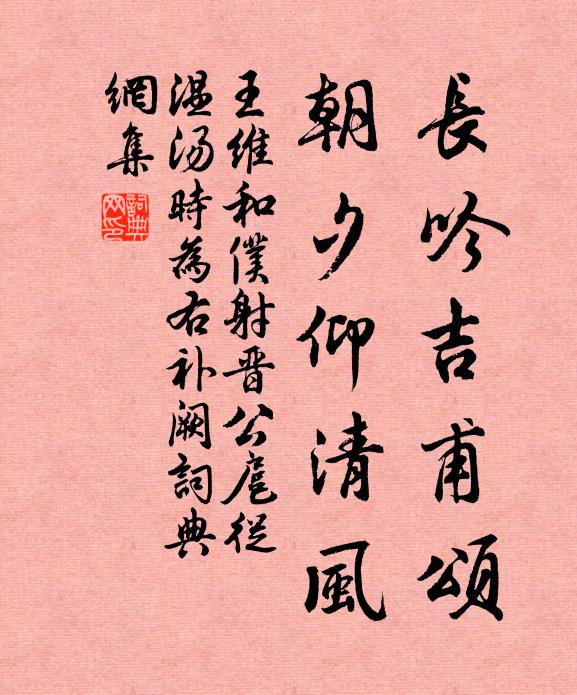 長吟吉甫頌
朝夕仰清風
王維和僕射晋公扈從
温湯時為右补阙詞典
網集
詞典
网印